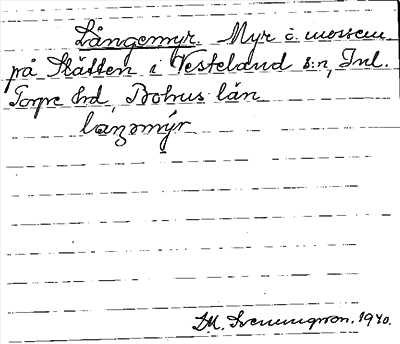 Långemyr. Myr o. mossem.
på Slätten i Vesteland s:n, Inl.
Torpe hrd, Bohus län
laŋəmýr
Svenungsson. 1940.